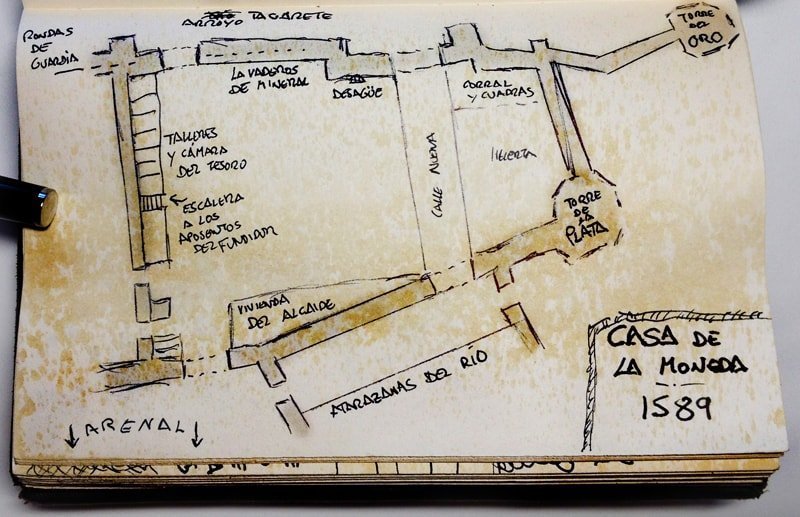 ARROYO TAGARETE
RONDAS
DE
GUARDIA
TORRE
DEL
ORO
LAVADEROS
DE MINERAL
DESAGÜE
CORRAL
Y CUADRAS
TALLERES
Y CÁMARA
DEL TESORO
CALLE NUEVA
HUERTA
ESCALERA
A LOS
APOSENTOS
DEL FUNDIDOR
TORRE
DE
LA
PLATA
VIVIENDA
DEL ALCAIDE
ATARAZANAS DEL RÍO
ARENAL
CASA DE
LA MONEDA
1589